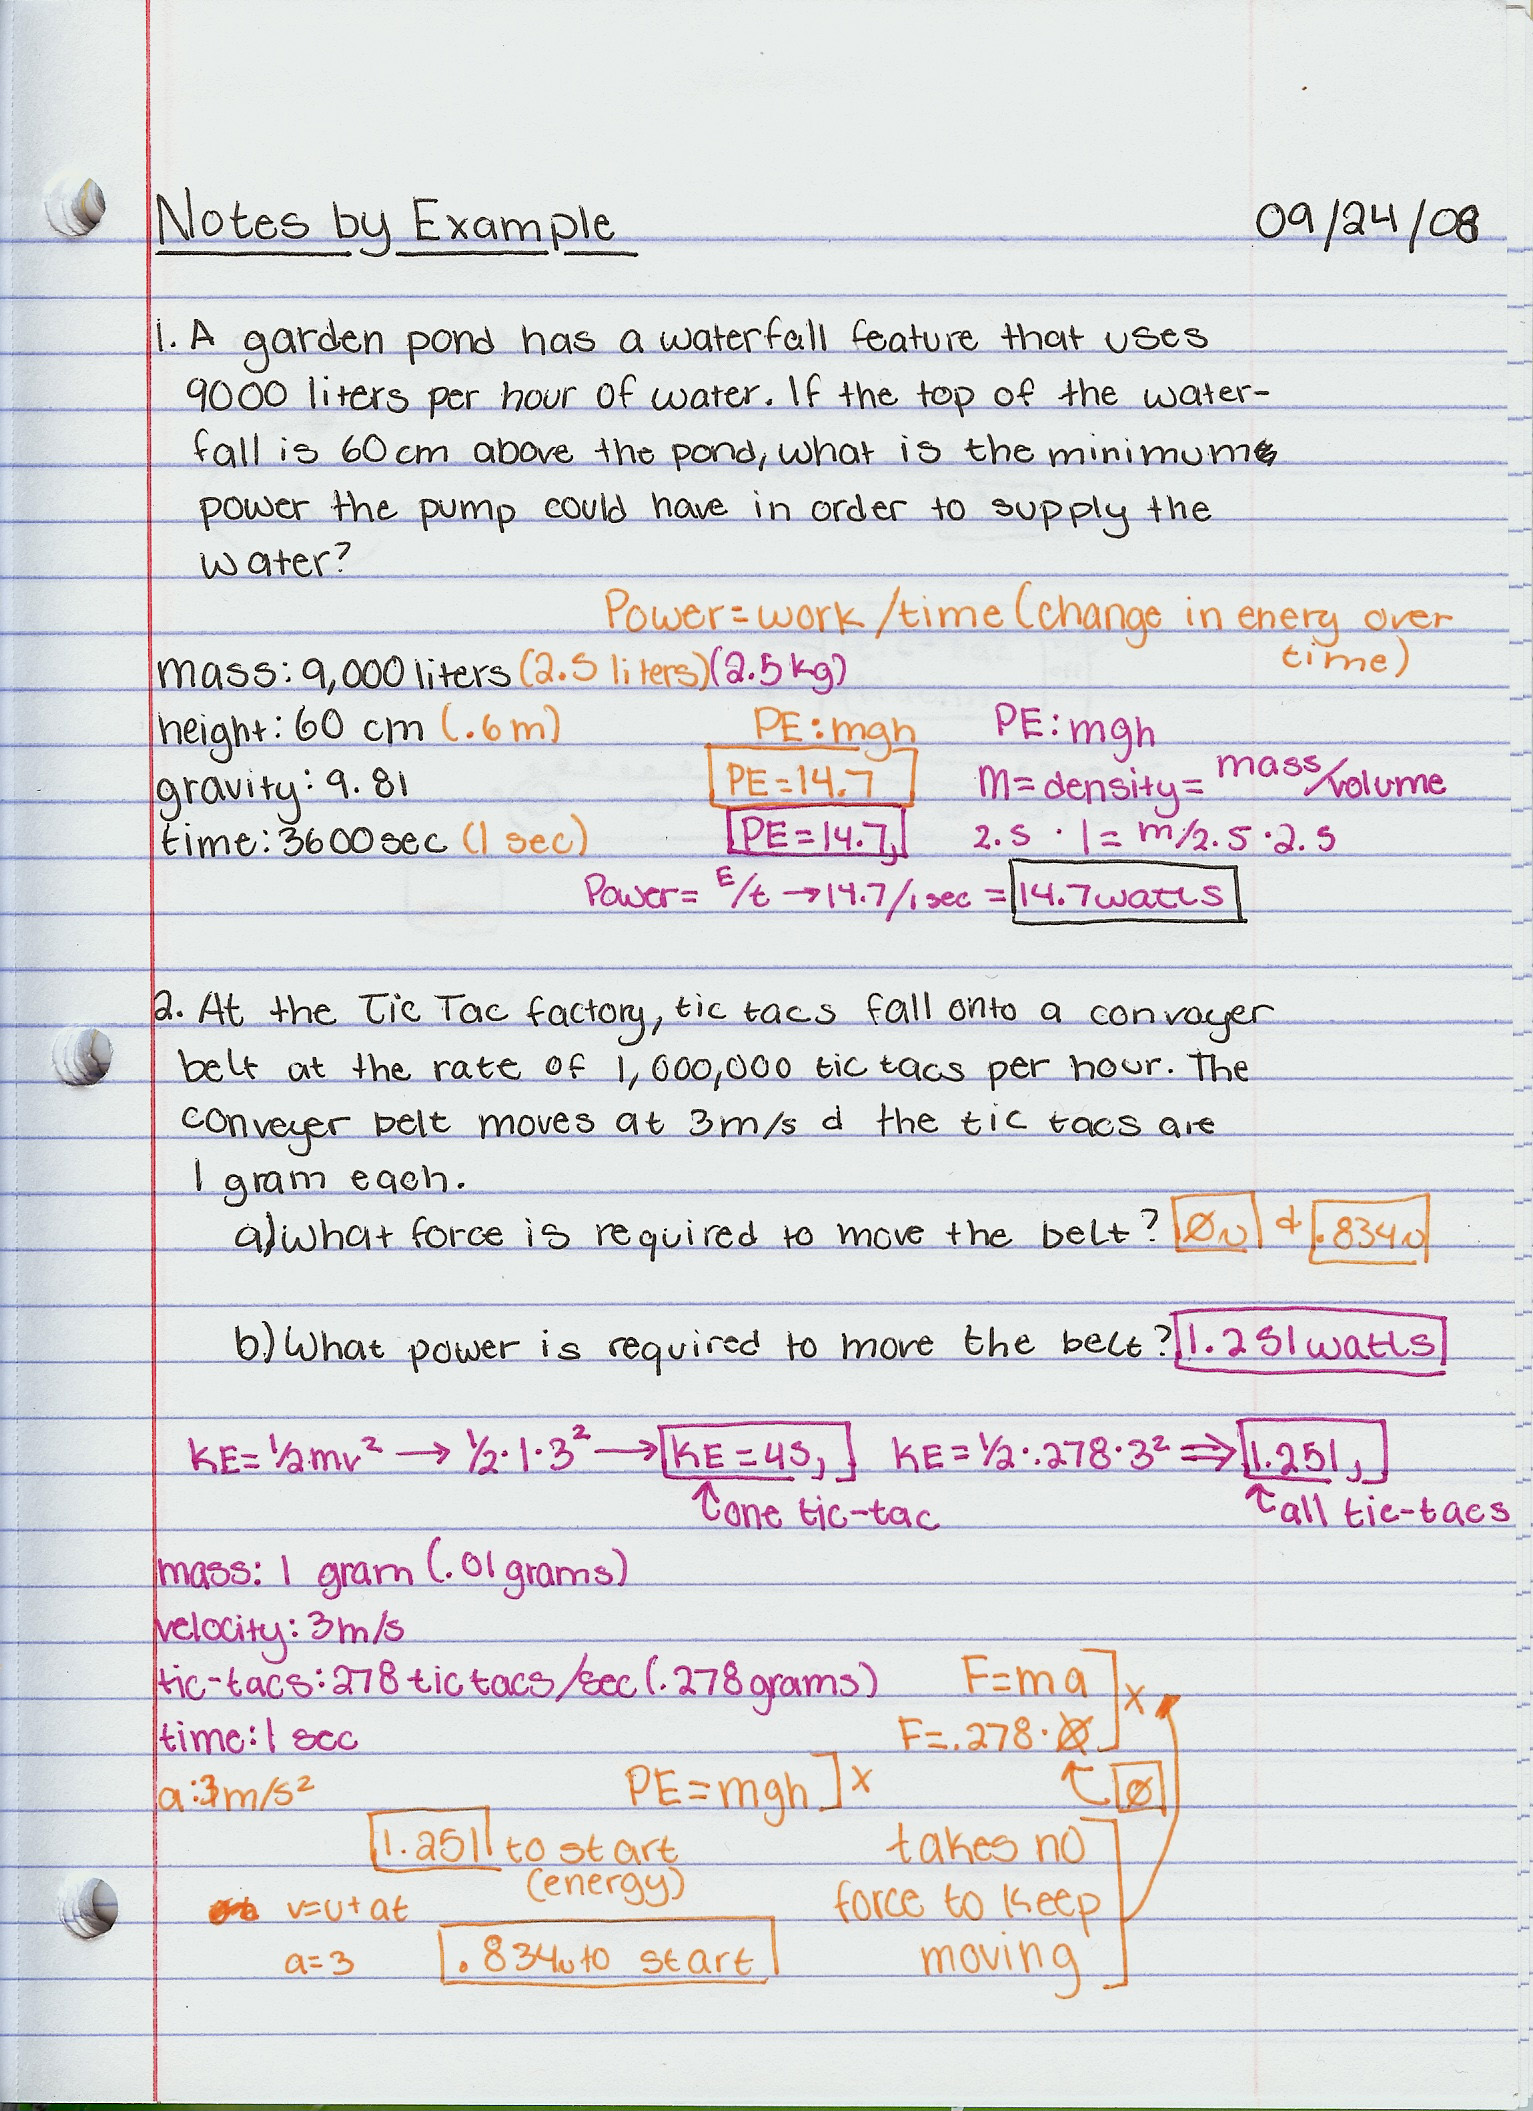 Notes by Example 09/24/08
1. A garden pond has a waterfall feature that uses
9000 liters per hour of water. If the top of the water-
fall is 60cm above the pond, what is the minimum
power the pump could have in order to supply the
water?
Power = work/time (change in enery over
time)
mass: 9,000 liters (2.5 liters) (2.5kg)
height: 60 cm (.6m) PE: mgh PE: mgh
gravity: 9.81 PE = 14.7 m = density = mass/volume
time: 3600sec (1 sec) PE = 14.7J 2.5 · 1 = m/2.5 · 2.5
Power = E/t → 14.7/1 sec = 14.7watts
2. At the Tic Tac factory, tic tacs fall onto a convayer
belt at the rate of 1,000,000 tic tacs per hour. The
conveyer belt moves at 3m/s d the tic tacs are
1 gram each.
a) What force is required to move the belt? ØN & .834N
b) What power is required to move the belt? 1.251watts
KE = 1/2mv² → 1/2 · 1 · 3² → KE = 45J KE = 1/2 · .278 · 3² ⇒ 1.251J
↑ one tic-tac ↑ all tic-tacs
mass: 1 gram (.01grams)
velocity: 3m/s
tic-tacs: 278 tic tacs/sec (.278grams) F=ma ] x
time: 1 sec F=.278 · Ø
a: 3m/s² PE = mgh ] x Ø
1.251 to start takes no
(energy) force to keep
v=u+at moving
a=3 .834N to start